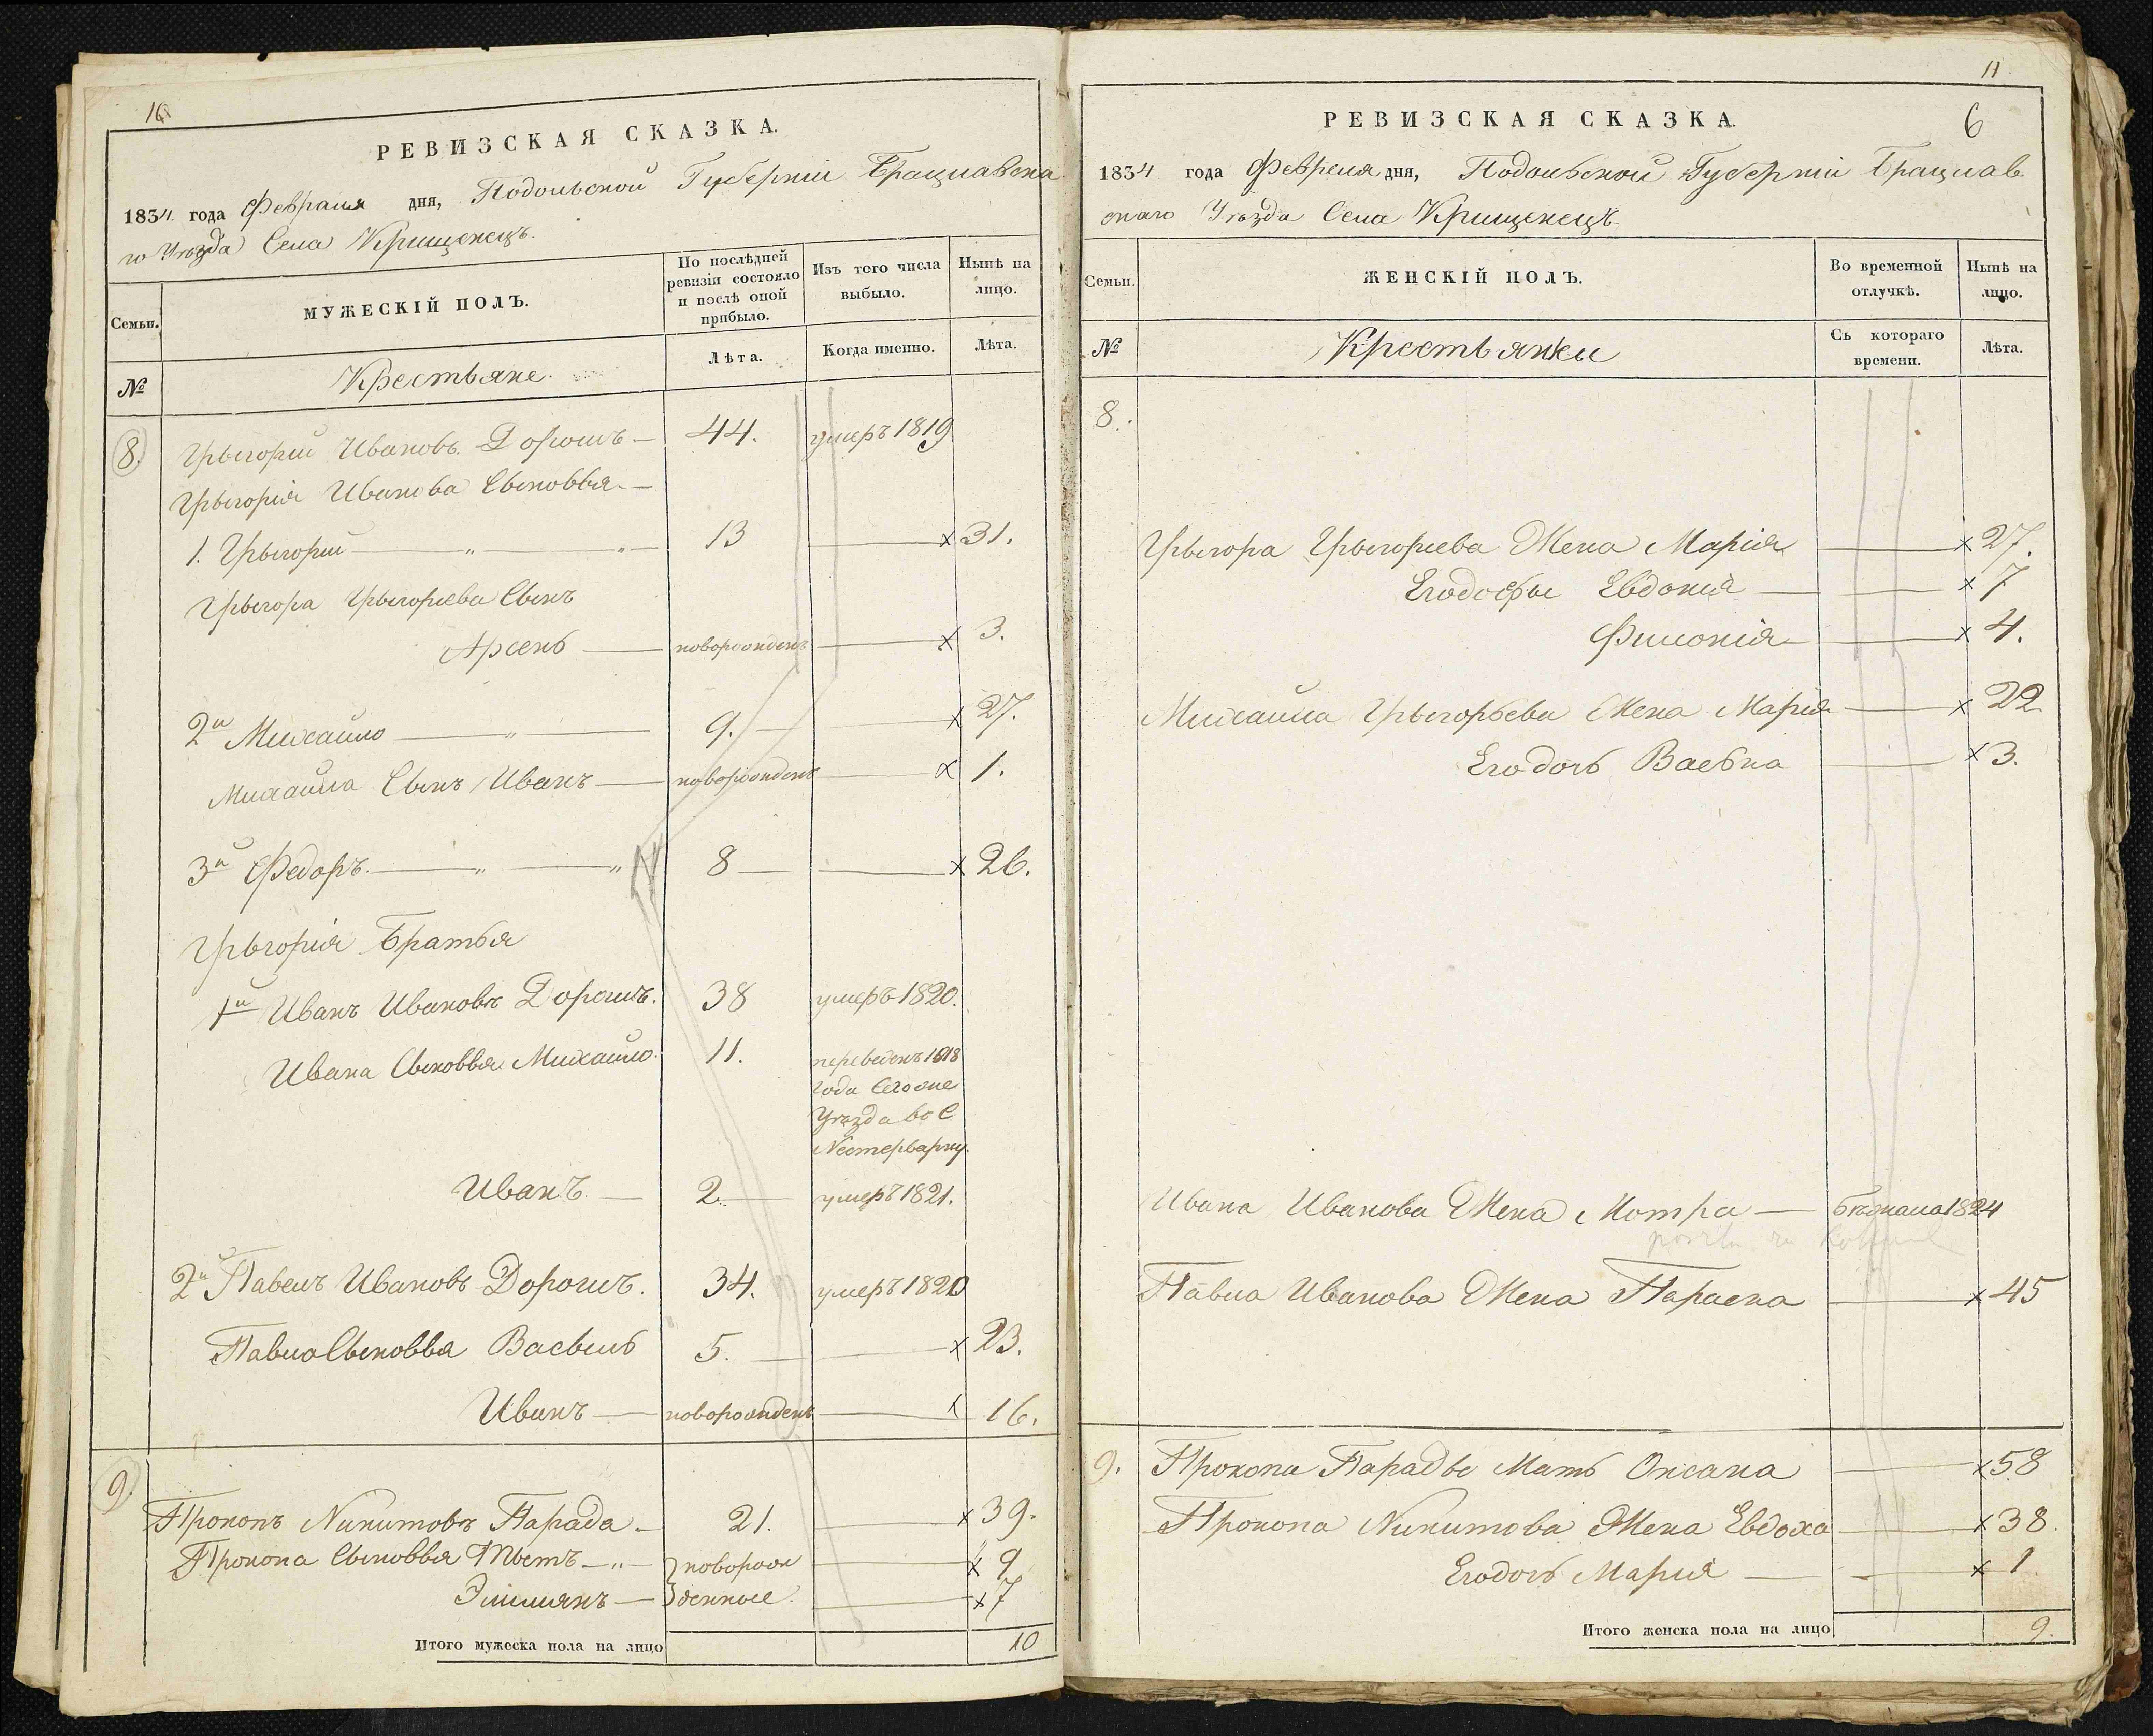 10
РЕВИЗСКАЯ СКАЗКА.
1834 года Февраля дня, Подольской Губернiи Брацлавска
го Уѣзда Села Крищенецъ.
Семьи.
МУЖЕСКIЙ ПОЛЪ.
По послѣдней ревизiи состояло и послѣ оной прибыло.
Изъ того числа выбыло.
Нынѣ на лицо.
№
Крестьяне.
Лѣта.
Когда именно.
Лѣта.
8. Грыгорiй Ивановъ Дорошъ — 44. умеръ 1819
Грыгорiя Иванова Сыновья —
1. Грыгорiй — " — " — 13 — x 31.
Грыгора Грыгорiева Сынъ
Арсенъ — новорожденъ — x 3.
2й Михайло — " — 9. — x 27.
Михайла Сынъ Иванъ — новорожденъ — x 1.
3й Федоръ — " — " 8 — x 26.
Грыгорiя Братья
1й Иванъ Ивановъ Дорошъ. 38 умеръ 1820.
Ивана Сыновья Михайло. 11. переведенъ 1818
года Сего же
Уѣзда во С
Нестерварку.
Иванъ — 2. — умеръ 1821.
2й Павелъ Ивановъ Дорошъ. 34. умеръ 1820
Павла Сыновья Васыль 5. — x 23.
Иванъ — новорожденъ — x 16.
9. Прокопъ Никитовъ Парада — 21. — x 39.
Прокопа Сыновья Тытъ — " — новорож — x 9
Эмилиянъ — денные. — x 7
Итого мужеска пола на лицо 10
11
6
РЕВИЗСКАЯ СКАЗКА.
1834 года Февреля дня, Подольской Губернiи Брацлав
скаго Уѣзда Села Крищенецъ
Семьи.
ЖЕНСКIЙ ПОЛЪ.
Во временной отлучкѣ.
Нынѣ на лицо.
№
Крестьянки
Съ котораго времени.
Лѣта.
8.
Грыгора Грыгорiева Жена Марiя — x 27.
Егодочры Евдокiя — x 7
Филонiя — x 4.
Михайла Грыгорьева Жена Марiя — x 22
Егодочь Васька — x 3.
Ивана Иванова Жена Мотра — бѣжала 1824
Павла Иванова Жена Параска — x 45
9. Прокопа Парады Мать Оксана — x 58
Прокопа Никитова Жена Евдоха — x 38.
Егодочь Марiя — x 1
Итого женска пола на лицо 9.